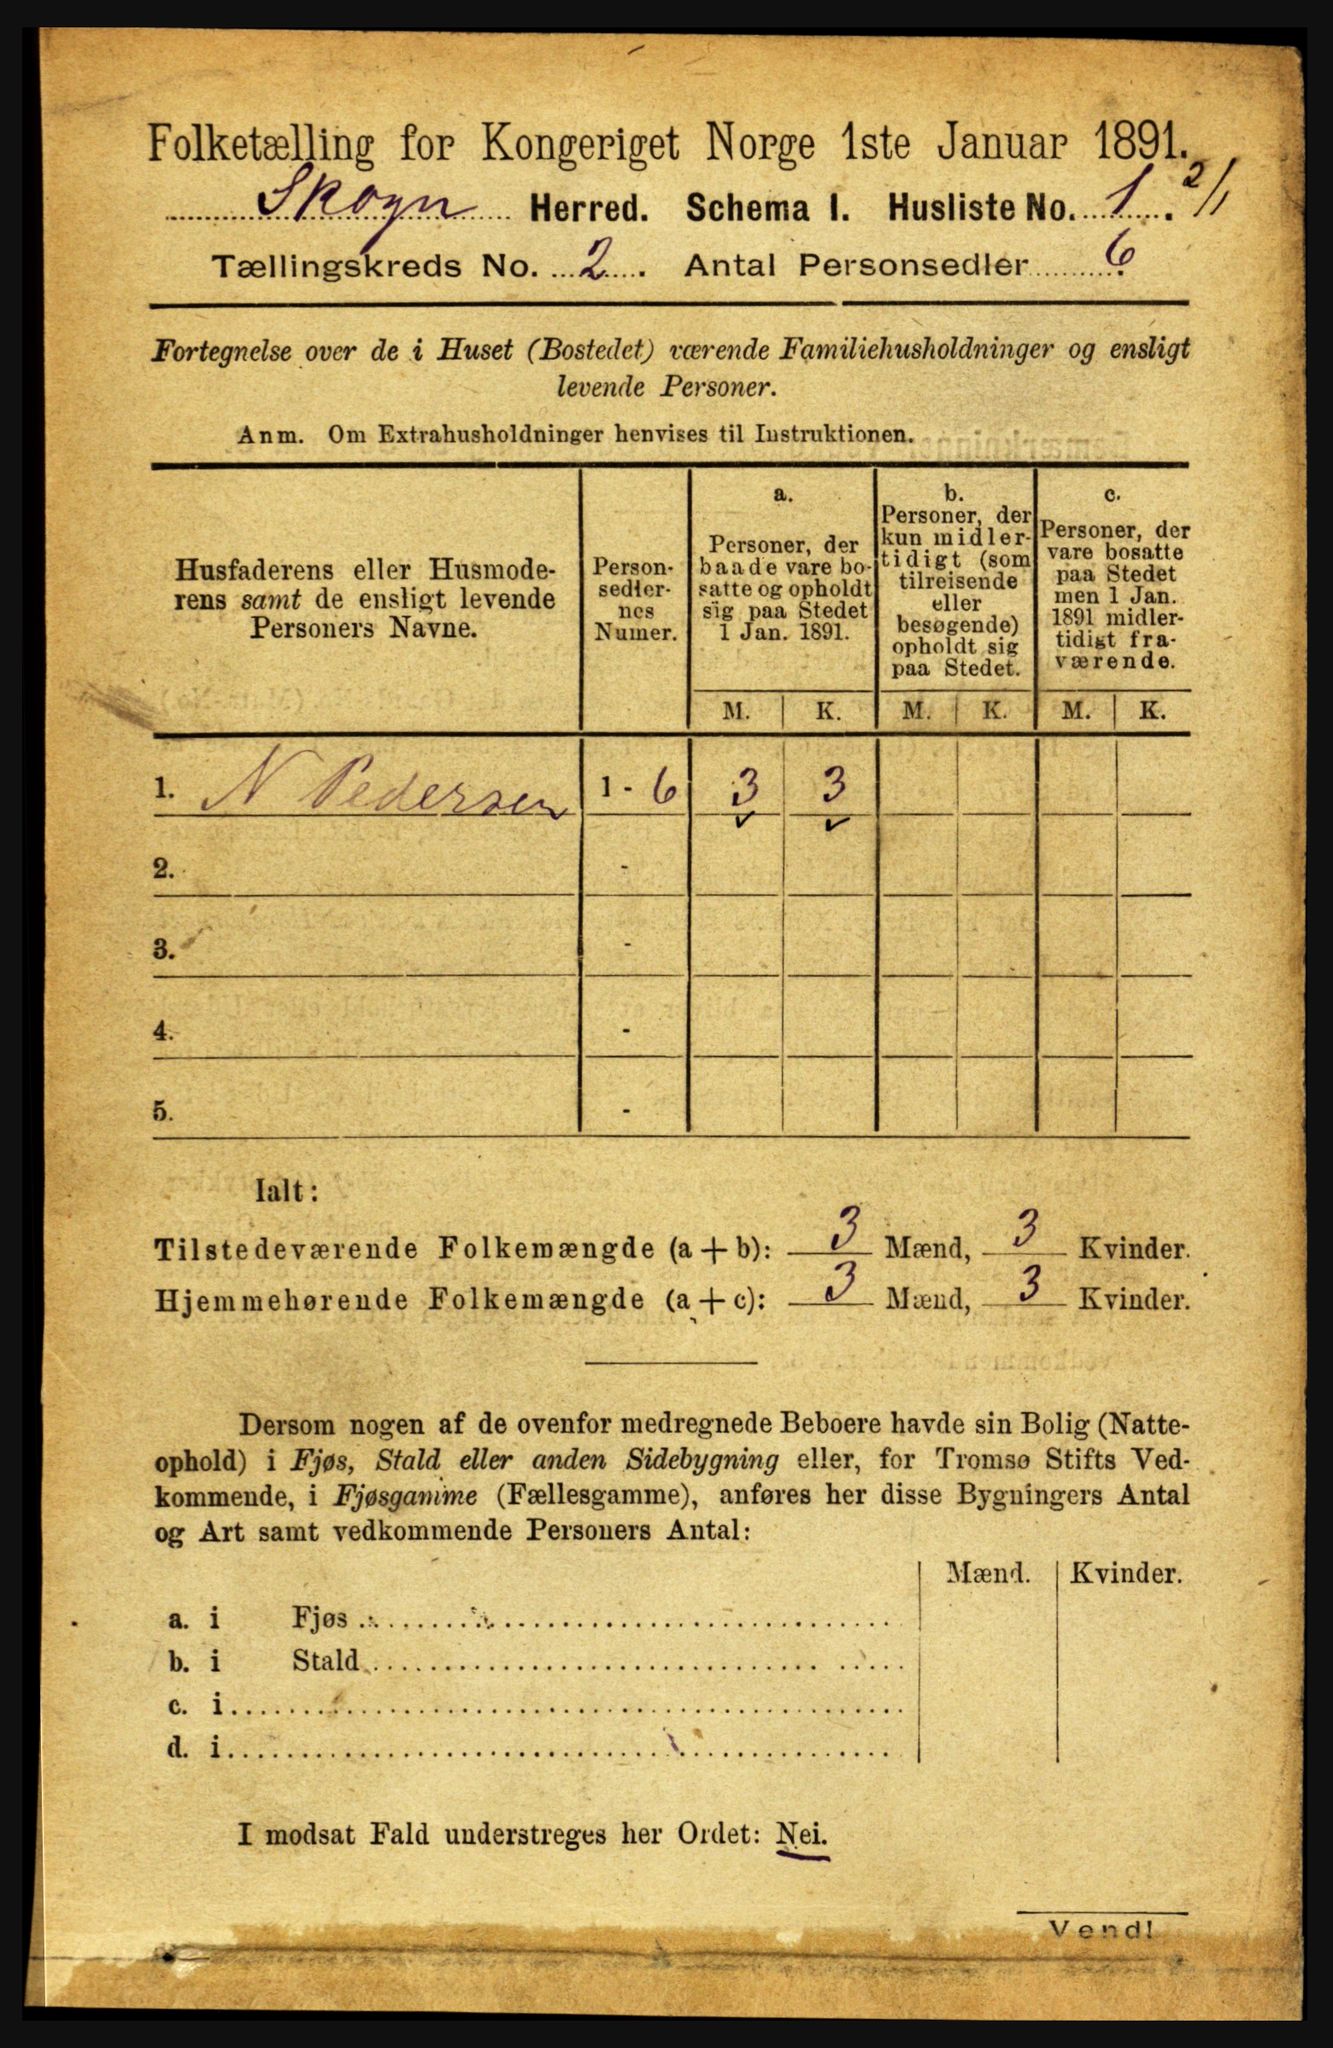 Folketælling for Kongeriget Norge 1ste Januar 1891.
Skogn Herred. Schema I. Husliste No. 1. 2/1
Tællingskreds No. 2. Antal Personsedler 6
Fortegnelse over de i Huset (Bostedet) værende Familiehusholdninger og ensligt
levende Personer.
Anm. Om Extrahusholdninger henvises til Instruktionen.
Husfaderens eller Husmode-
rens samt de ensligt levende
Personers Navne.
Person-
sedler-
nes
Numer.
a.
Personer, der
baade vare bo-
satte og opholdt
sig paa Stedet
1 Jan. 1891.
b.
Personer, der
kun midler-
tidigt (som
tilreisende
eller
besøgende)
opholdt sig
paa Stedet.
c.
Personer, der
vare bosatte
paa Stedet
men 1 Jan.
1891 midler-
tidigt fra-
værende.
M. K. M. K. M. K.
1. N Pedersen 1 - 6 3 3
2. -
3. -
4. -
5. -
Ialt:
Tilstedeværende Folkemængde (a + b): 3 Mænd, 3 Kvinder.
Hjemmehørende Folkemængde (a + c): 3 Mænd, 3 Kvinder.
Dersom nogen af de ovenfor medregnede Beboere havde sin Bolig (Natte-
ophold) i Fjøs, Stald eller anden Sidebygning eller, for Tromsø Stifts Ved-
kommende, i Fjøsgamme (Fællesgamme), anføres her disse Bygningers Antal
og Art samt vedkommende Personers Antal:
Mænd. Kvinder.
a. i Fjøs
b. i Stald
c. i
d. i
I modsat Fald understreges her Ordet: Nei.
Vend!